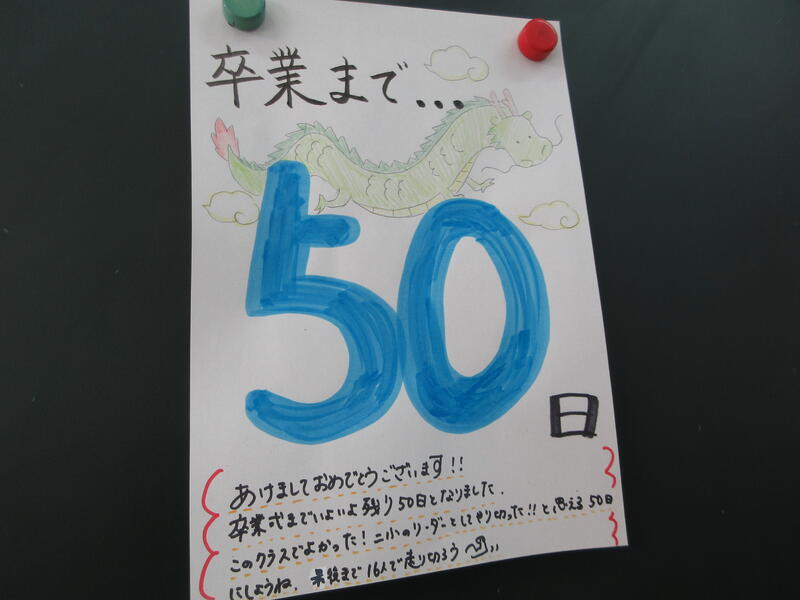 卒業まで...
50
日
あけましておめでとうございます!!
卒業式までいよいよ残り50日となりました.
このクラスでよかった!二小のリーダーとしてやり切った!!と思える50日
にしようね. 最後まで16人で走り切ろう